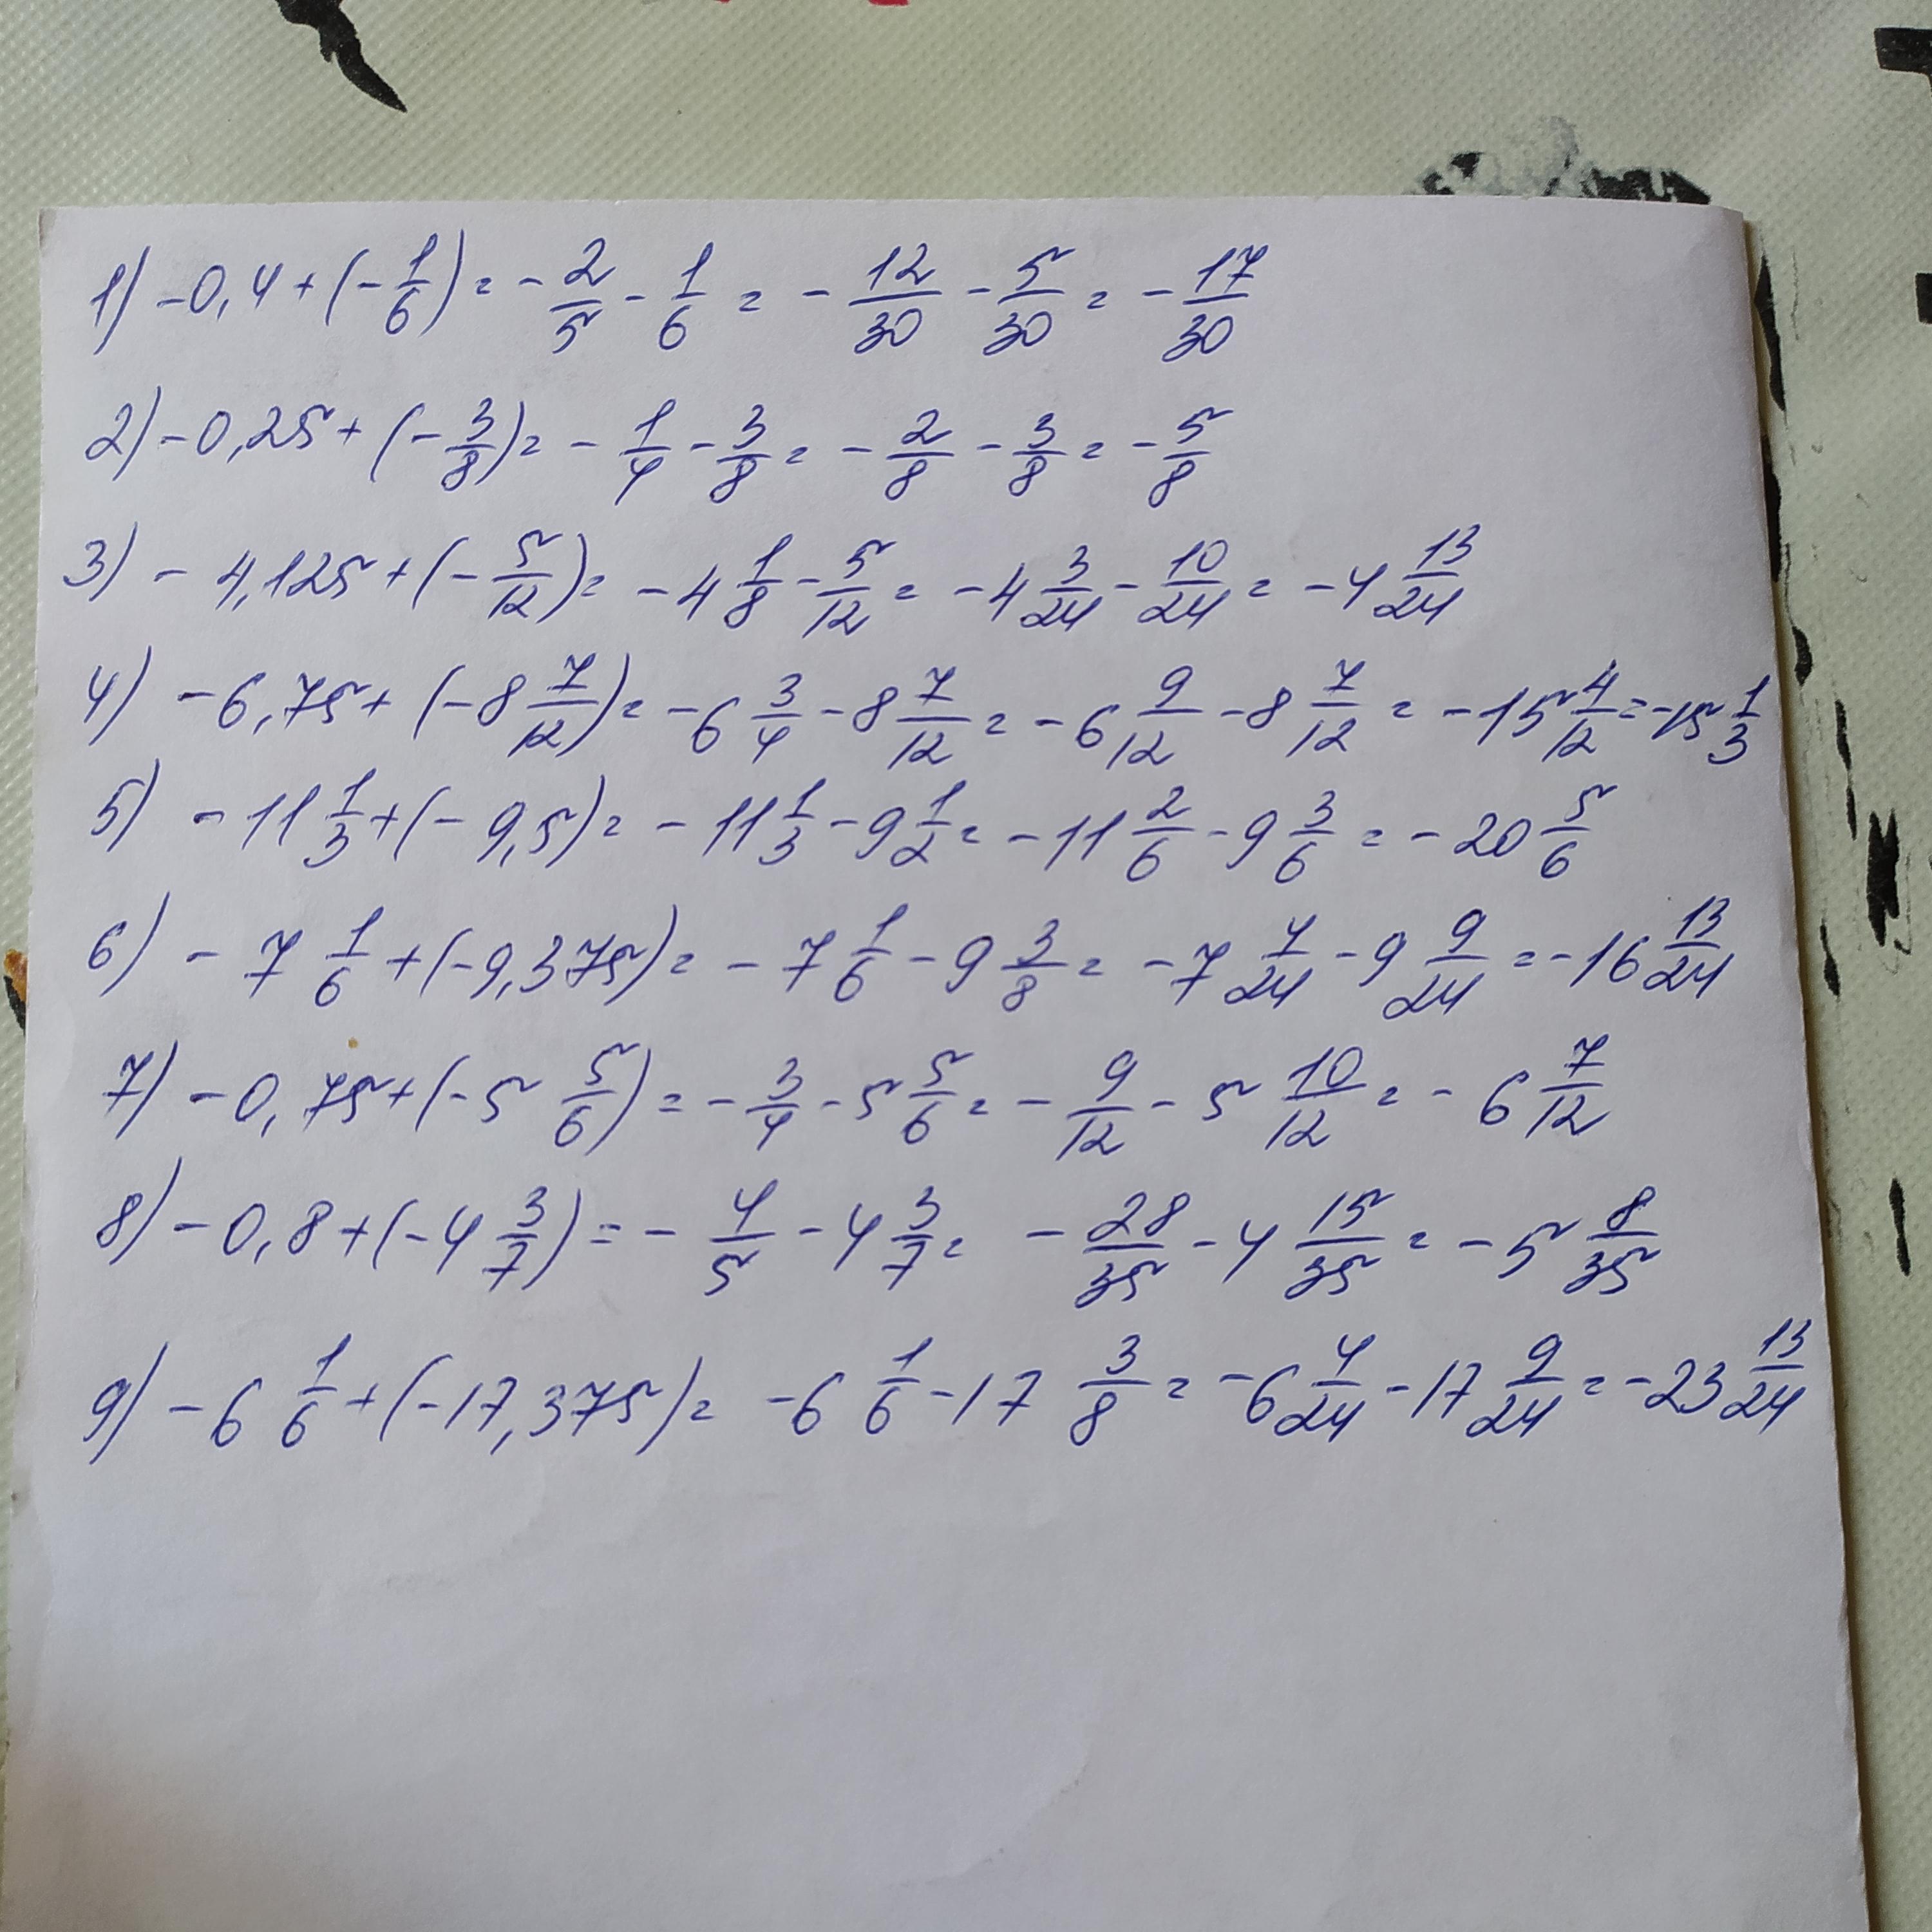 1) -0,4+(-1/6)=-2/5-1/6=-12/30-5/30=-17/30
2) -0,25+(-3/8)=-1/4-3/8=-2/8-3/8=-5/8
3) -4,125+(-5/12)=-4 1/8-5/12=-4 3/24-10/24=-4 13/24
4) -6,75+(-8 7/12)=-6 3/4-8 7/12=-6 9/12-8 7/12=-15 4/12=-15 1/3
5) -11 1/3+(-9,5)=-11 1/3-9 1/2=-11 2/6-9 3/6=-20 5/6
6) -7 1/6+(-9,375)=-7 1/6-9 3/8=-7 4/24-9 9/24=-16 13/24
7) -0,75+(-5 5/6)=-3/4-5 5/6=-9/12-5 10/12=-6 7/12
8) -0,8+(-4 3/7)=-4/5-4 3/7=-28/35-4 15/35=-5 8/35
9) -6 1/6+(-17,375)=-6 1/6-17 3/8=-6 4/24-17 9/24=-23 13/24